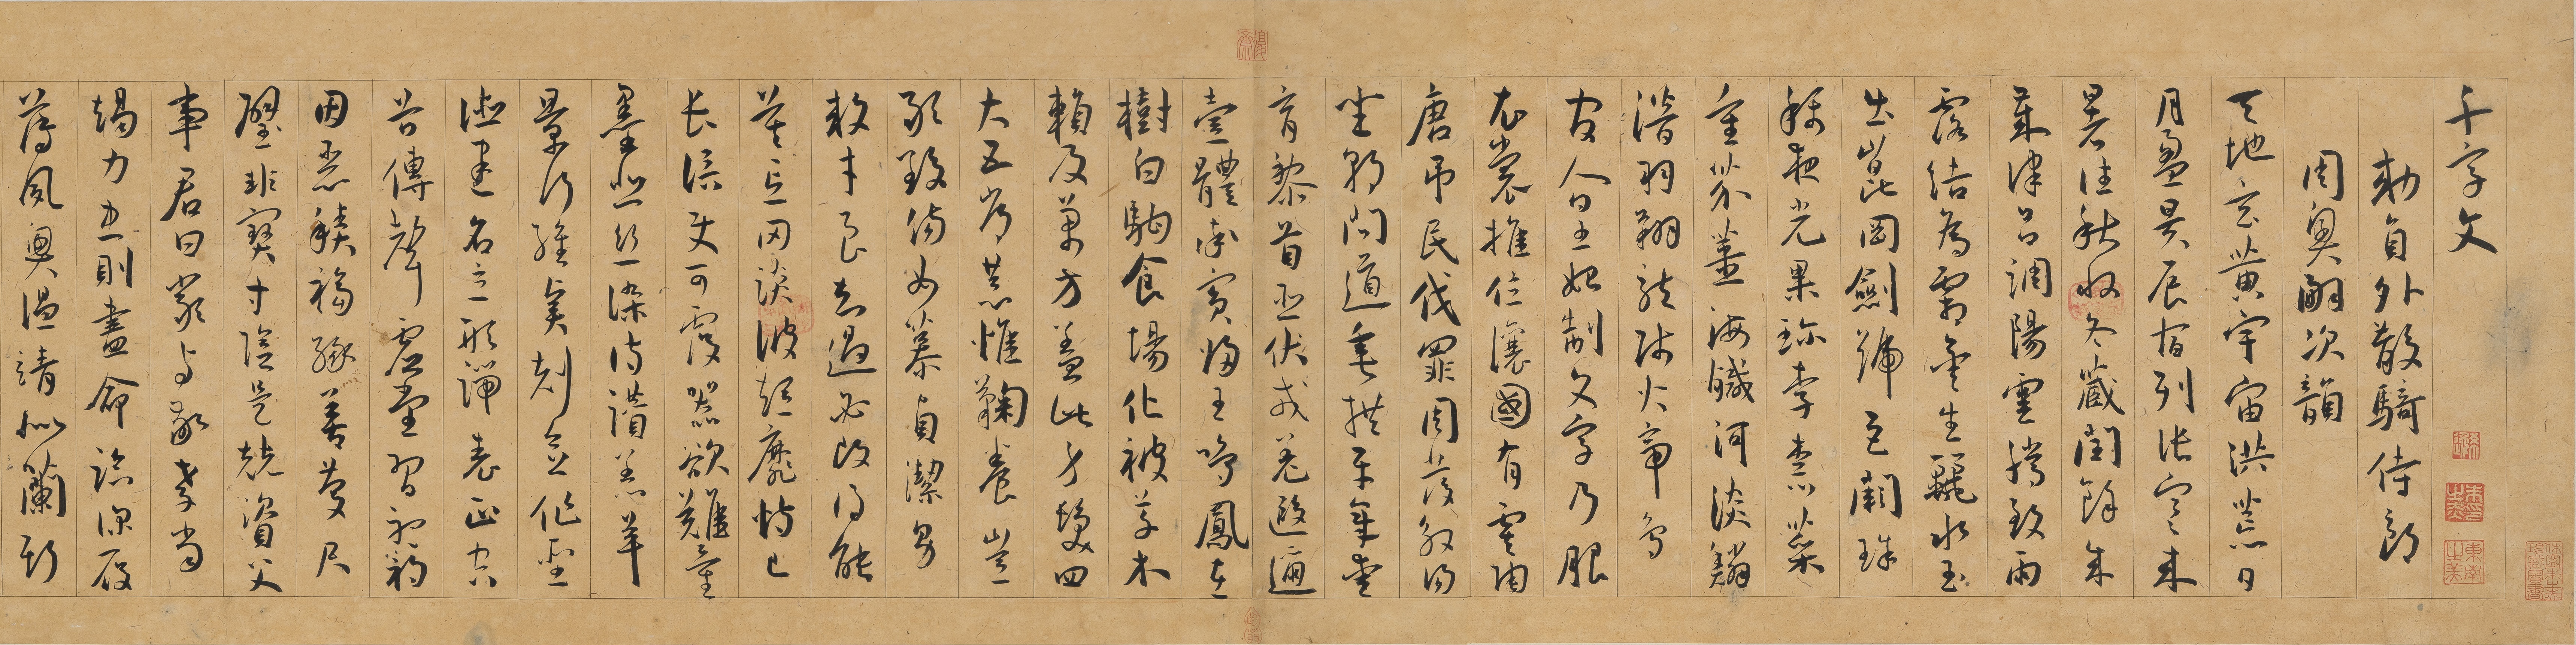 千字文
勑員外散騎侍郎
周興嗣次韻
天地玄黃宇宙洪荒日
月盈昃辰宿列張寒來
暑往秋收冬藏閏餘成
歲律呂調陽雲騰致雨
露結為霜金生麗水玉
出崑岡劍號巨闕珠
稱夜光果珍李柰菜
重芥薑海鹹河淡鱗
潛羽翔龍師火帝鳥
官人皇始制文字乃服
衣裳推位讓國有虞陶
唐吊民伐罪周發殷湯
坐朝問道垂拱平章愛
育黎首臣伏戎羌遐邇
壹體率賓歸王鳴鳳在
樹白駒食場化被草木
賴及萬方蓋此身髮四
大五常恭惟鞠養豈
敢毀傷女慕貞潔男
效才良知過必改得能
莫忘罔談彼短靡恃己
長信使可覆器欲難量
墨悲絲染詩讚羔羊
景行維賢剋念作聖
德建名立形端表正空
谷傳聲虛堂習聽禍
因惡積福緣善慶尺
璧非寶寸陰是競資父
事君曰嚴與敬孝當
竭力忠則盡命臨深履
薄夙興溫清似蘭斯
東南之美